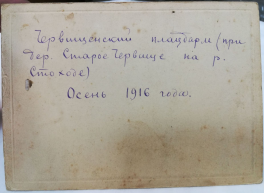 Червищенский плацдарм (при
дер. Старое Червище на р.
Стоходе)
Осень 1916 года.